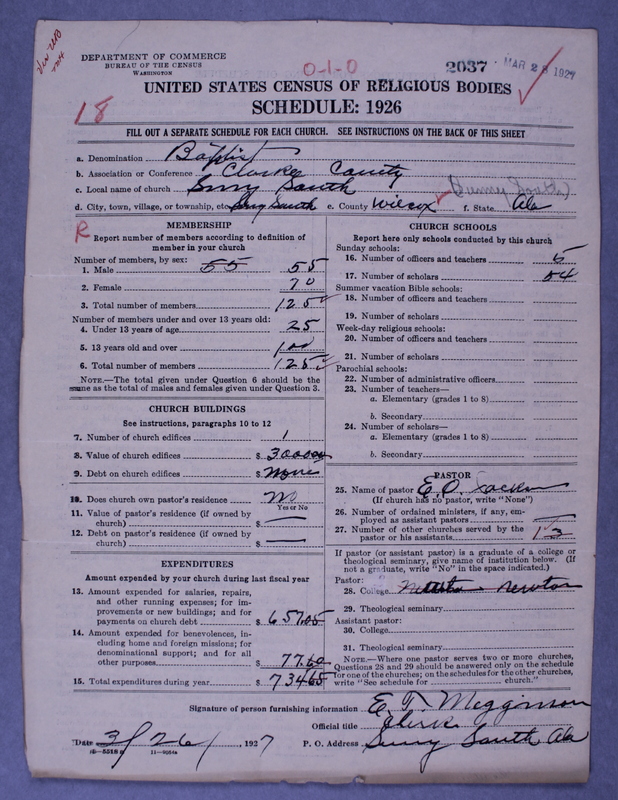 DEPARTMENT OF COMMERCE
BUREAU OF THE CENSUS
WASHINGTON
0-1-0
2037
MAR 28 1927
18
UNITED STATES CENSUS OF RELIGIOUS BODIES
SCHEDULE: 1926
FILL OUT A SEPARATE SCHEDULE FOR EACH CHURCH. SEE INSTRUCTIONS ON THE BACK OF THIS SHEET
a. Denomination Baptist
b. Association or Conference Clarke County
c. Local name of church Suny South (Sunny South)
d. City, town, village, or township, etc. Suny South e. County Wilcox f. State Ala
R
MEMBERSHIP
Report number of members according to definition of
member in your church
Number of members, by sex:
1. Male 55 55
2. Female 70
3. Total number of members 125
Number of members under and over 13 years old:
4. Under 13 years of age 25
5. 13 years old and over 100
6. Total number of members 125
NOTE.—The total given under Question 6 should be the
same as the total of males and females given under Question 3.
CHURCH BUILDINGS
See instructions, paragraphs 10 to 12
7. Number of church edifices 1
8. Value of church edifices $ 3000.00
9. Debt on church edifices $ None
10. Does church own pastor's residence No
Yes or No
11. Value of pastor's residence (if owned by
church) $
12. Debt on pastor's residence (if owned by
church) $
EXPENDITURES
Amount expended by your church during last fiscal year
13. Amount expended for salaries, repairs,
and other running expenses; for im-
provements or new buildings; and for
payments on church debt $ 657.05
14. Amount expended for benevolences, in-
cluding home and foreign missions; for
denominational support; and for all
other purposes $ 77.60
15. Total expenditures during year $ 734.65
CHURCH SCHOOLS
Report here only schools conducted by this church
Sunday schools:
16. Number of officers and teachers 6
17. Number of scholars 54
Summer vacation Bible schools:
18. Number of officers and teachers
19. Number of scholars
Week-day religious schools:
20. Number of officers and teachers
21. Number of scholars
Parochial schools:
22. Number of administrative officers
23. Number of teachers—
a. Elementary (grades 1 to 8)
b. Secondary
24. Number of scholars—
a. Elementary (grades 1 to 8)
b. Secondary
PASTOR
25. Name of pastor E. O.
(If church has no pastor, write "None")
26. Number of ordained ministers, if any, em-
ployed as assistant pastors
27. Number of other churches served by the
pastor or his assistants 3
If pastor (or assistant pastor) is a graduate of a college or
theological seminary, give name of institution below. (If
not a graduate, write "No" in the space indicated.)
Pastor:
28. College Newton
29. Theological seminary
Assistant pastor:
30. College
31. Theological seminary
NOTE.—Where one pastor serves two or more churches,
Questions 28 and 29 should be answered only on the schedule
for one of the churches; on the schedules for the other churches,
write "See schedule for church."
Signature of person furnishing information E. T. Megginson
Official title Clerk
Date 3/26/, 1927 P. O. Address Suny South Ala